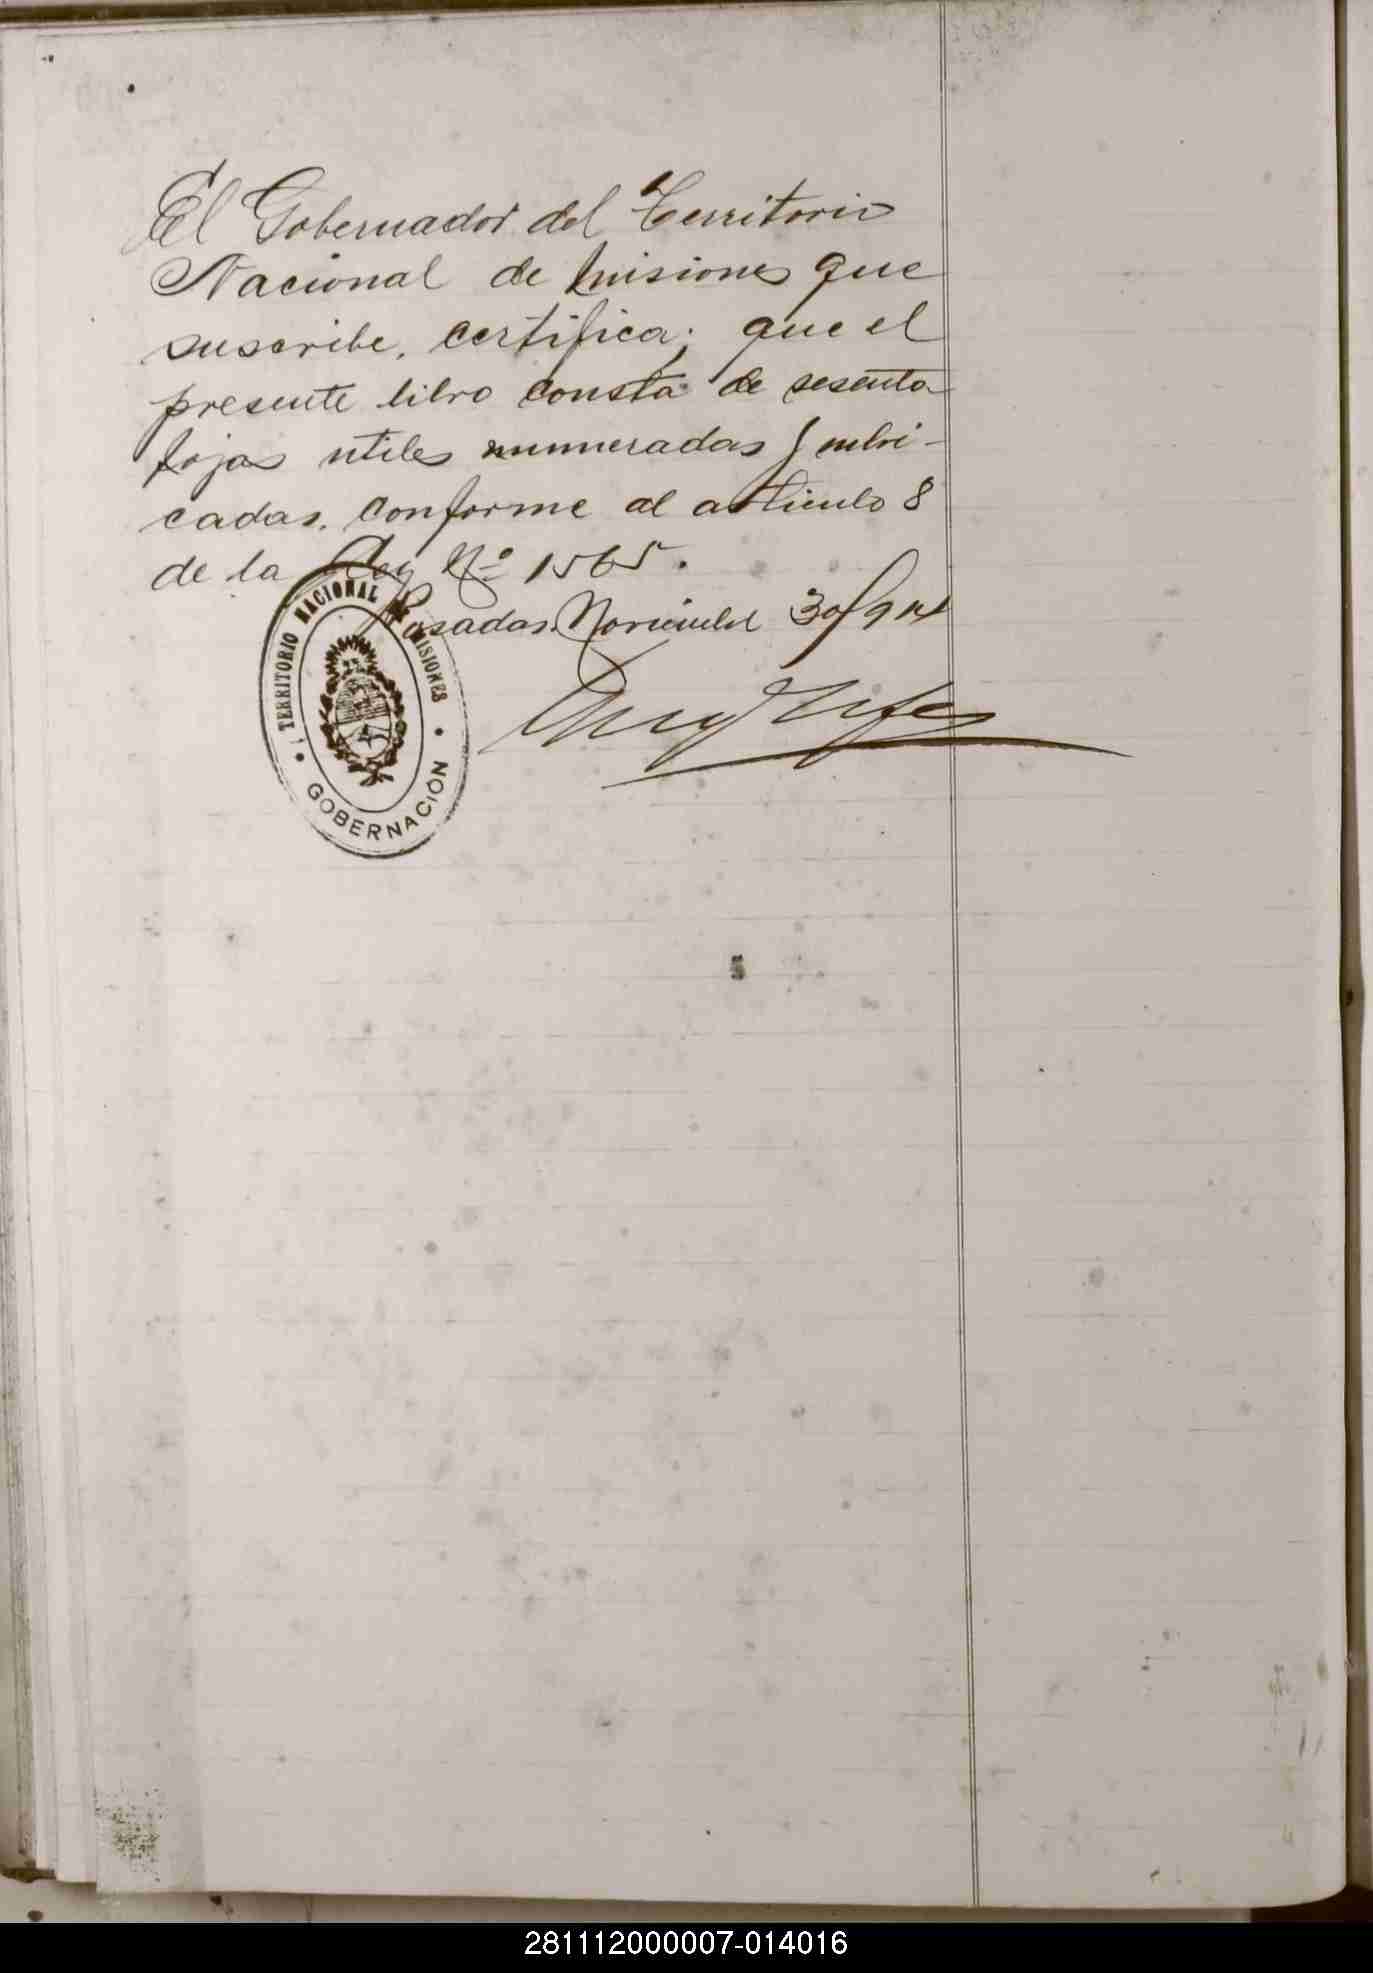 El Gobernador del Territorio
Nacional de Misiones que
suscribe, certifica; que el
presente libro consta de sesenta
fojas utiles numeradas y rubri-
cadas, conforme al articulo 8
de la Ley Nº 1565.
Posadas. Noviembre 30/911
TERRITORIO NACIONAL DE MISIONES
GOBERNACIÓN
281112000007-014016